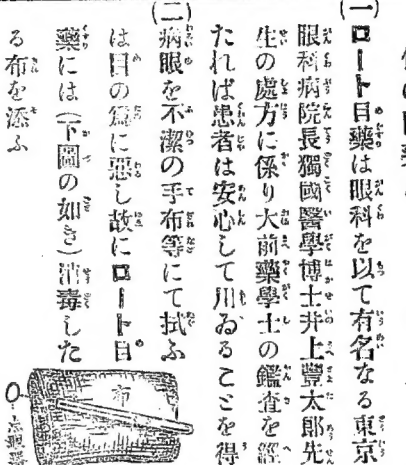 (一)ロート目藥は眼科を以て有名なる東京
眼科病院長獨國醫學博士井上豐太郎先
生の處方に係り大前藥學士の鑑査を經
たれば患者は安心して用ゐることを得
(二)病眼を不潔の手布等にて拭ふ
は目の爲に惡し故にロート目
藥には(下圖の如き)消毒した
る布を添ふ
布